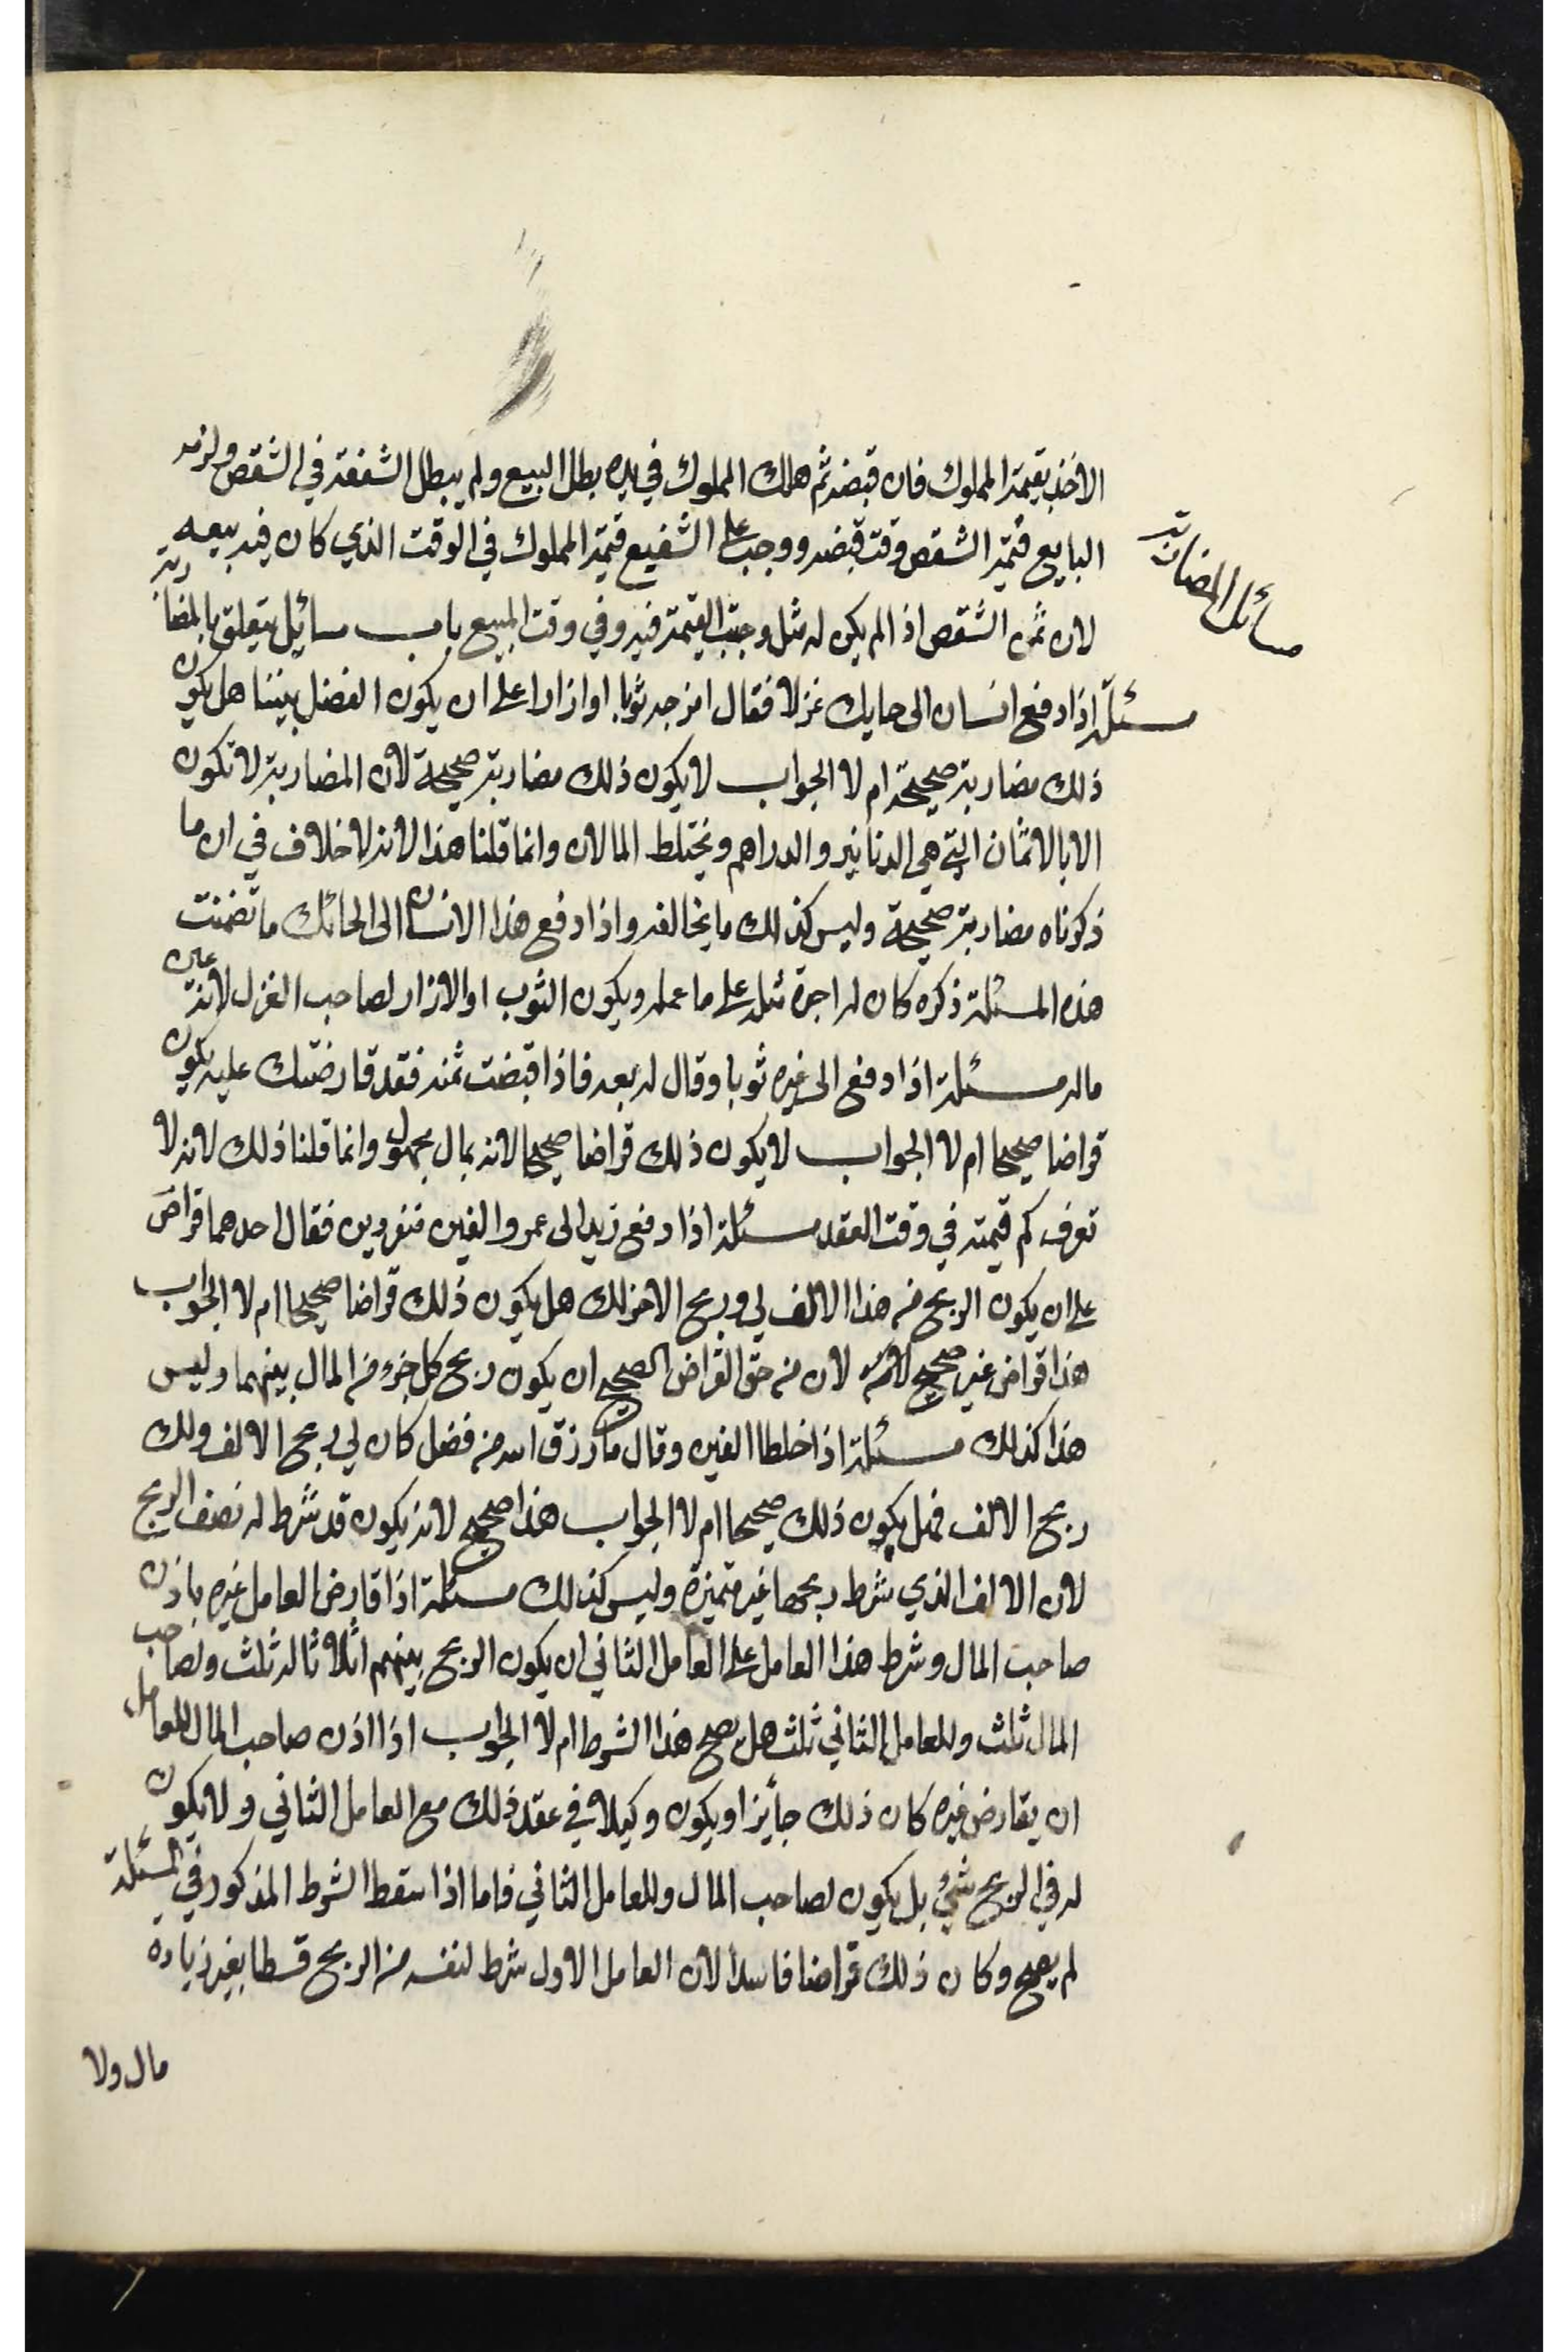 الاخذ بقيمة المملوك فان قبضه ثم هلك المملوك في يده بطل البيع ولم يبطل الشفعة في الشقص ولزمه
البايع قيمة الشقص وقت قبضه ووجب على الشفيع قيمة المملوك في الوقت الذي كان فيه بيعه
مسائل المضاربة
لان ثمن الشقص اذا لم يكن له مثل وجبت القيمة فيه وفي وقت المبيع باب مسائل يتعلق بالمضاربة
مسئلة اذا دفع انسان الى حايك غزلا فقال انزجه ثوبا او ازارا على ان يكون الفضل بيننا هل يكون
ذلك مضاربة صحيحة ام لا الجواب لا يكون ذلك مضاربة صحيحة لان المضاربة لا تكون
الا بالاثمان التي هي الدنانير والدراهم ويختلط المالان وانما قلنا هذا لانه لا خلاف في ان ما
ذكرناه مضاربة صحيحة وليس كذلك ما يخالفه واذا دفع هذا الانسان الى الحائك ما تضمنت
هذه المسئلة ذكره كان له اجرة مثله على ما عمله ويكون الثوب او الازار لصاحب الغزل لانه عين
ماله مسئلة اذا دفع الى غيره ثوبا وقال له بعه فاذا قبضت ثمنه فقد قارضتك عليه يكون
قراضا صحيحا ام لا الجواب لا يكون ذلك قراضا صحيحا لانه بمال مجهول وانما قلنا ذلك لانه لا
تعرف كم قيمته في وقت العقد مسئلة اذا دفع زيد الى عمرو الفين منفردين فقال احدهما قراض
على ان يكون الربح من هذا الالف لي وربح الاخر لك هل يكون ذلك قراضا صحيحا ام لا الجواب
هذا قراض غير صحيح لان من حق القراض الصحيح ان يكون ربح كل جزء من المال بينهما وليس
هذا كذلك مسئلة اذا خلطا الفين وقال ما رزق الله من فضل كان لي ربح الالف ولك
ربح الالف فهل يكون ذلك صحيحا ام لا الجواب هذا صحيح لانه يكون قد شرط له نصف الربح
لان الالف الذي شرط ربحها غير متميزة وليس كذلك مسئلة اذا قارض العامل غيره باذن
صاحب المال وشرط هذا العامل على العامل الثاني ان يكون الربح بينهم اثلاثا له ثلث ولصاحب
المال ثلث وللعامل الثاني ثلث هل يصح هذا الشرط ام لا الجواب اذا اذن صاحب المال للعامل
ان يقارض غيره كان ذلك جايزا ويكون وكيلا في عقد ذلك مع العامل الثاني ولا يكون
له في الربح شيء بل يكون لصاحب المال وللعامل الثاني فاما اذا سقط الشرط المذكور في المسئلة
لم يصح وكان ذلك قراضا فاسدا لان العامل الاول شرط لنفسه من الربح قسطا بغير زياده
مال ولا